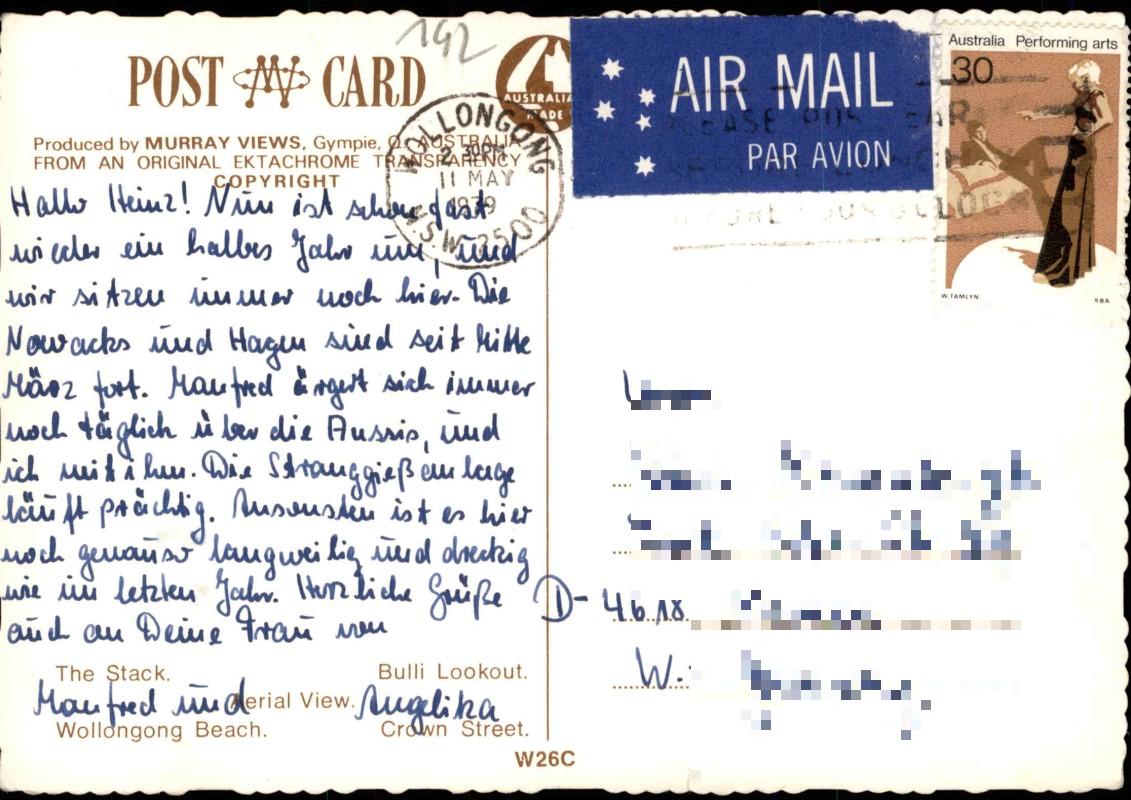 142
POST CARD
AUSTRALIA
MADE
Produced by MURRAY VIEWS, Gympie, Q. AUSTRALIA
FROM AN ORIGINAL EKTACHROME TRANSPARENCY
COPYRIGHT
WOLLONGONG
2 30PM
11 MAY
1979
N.S.W. 2500
AIR MAIL
PAR AVION
PLEASE POST EARLY
Australia Performing arts
30
W.TAMLYN
RBA
Hallo Heinz! Nun ist schon fast
wieder ein halbes Jahr um, und
wir sitzen immer noch hier. Die
Nowacks und Hagen sind seit Mitte
März fort. Manfred ärgert sich immer
noch täglich über die Aussis, und
ich mit ihm. Die Stranggießanlage
läuft prächtig. Ansonsten ist es hier
noch genauso langweilig und dreckig
wie im letzten Jahr. Herzliche Grüße
auch an Deine Frau von
Manfred und Angelika
D- 4618
W.
The Stack.
Bulli Lookout.
Aerial View.
Wollongong Beach.
Crown Street.
W26C